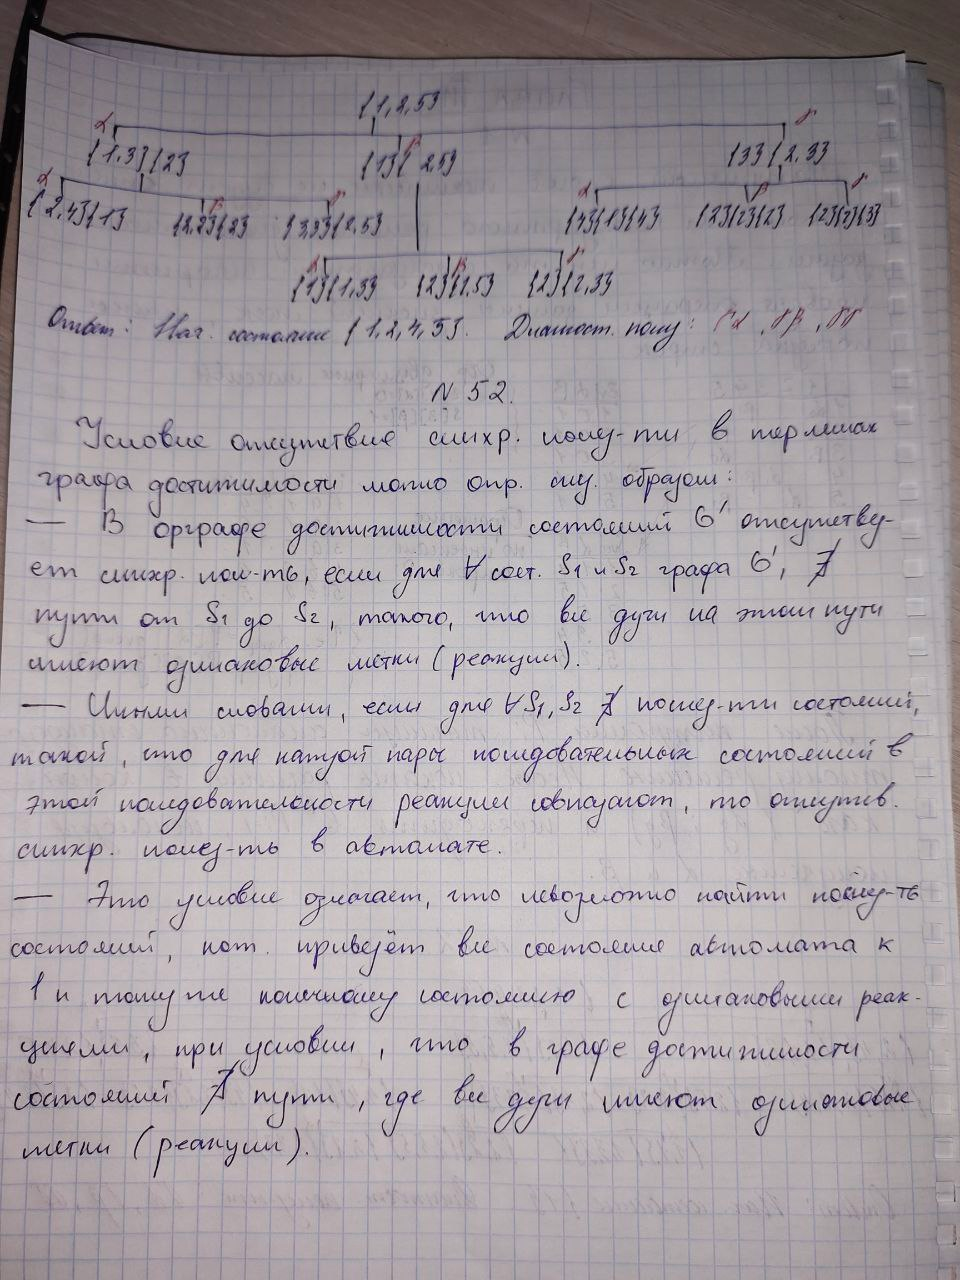 {1,2,5}
α γ
{1,3}{2} {1}{ 2,5} {3}{2,3}
α β γ α β γ
{2,4}{1} {2,2}{2} {3,3}{2,5} {4}{1}{4} {2}{2}{2} {2}{2}{3}
α β γ
{1}{1,3} {2}{2,5} {2}{2,3}
Ответ: Нач. состояние {1,2,4,5}. Диагност. послу: γα, γβ, γγ
N 52.
Условие отсутствие синхр. послу-ти в терминах
графа достижимости можно опр. слу. образом:
— В орграфе достижимости состояний G' отсутству-
ет синхр. пос-ть, если для ∀ сост. S1 и S2 графа G', ∄
пути от S1 до S2, такого, что все дуги на этом пути
имеют одинаковые метки (реакции).
— Иными словами, если для ∀ S1, S2 ∄ послед-ти состояний,
такой, что для каждой пары последовательных состояний в
этой последовательности реакции совпадают, то отсутств.
синхр. послед-ть в автомате.
— Это условие означает, что невозможно найти послед-ть
состояний, кот. приведёт все состояние автомата к
1 и тому же конечному состоянию с одинаковыми реак-
циями, при условии, что в графе достижимости
состояний ∄ пути, где все дуги имеют одинаковые
метки (реакции).